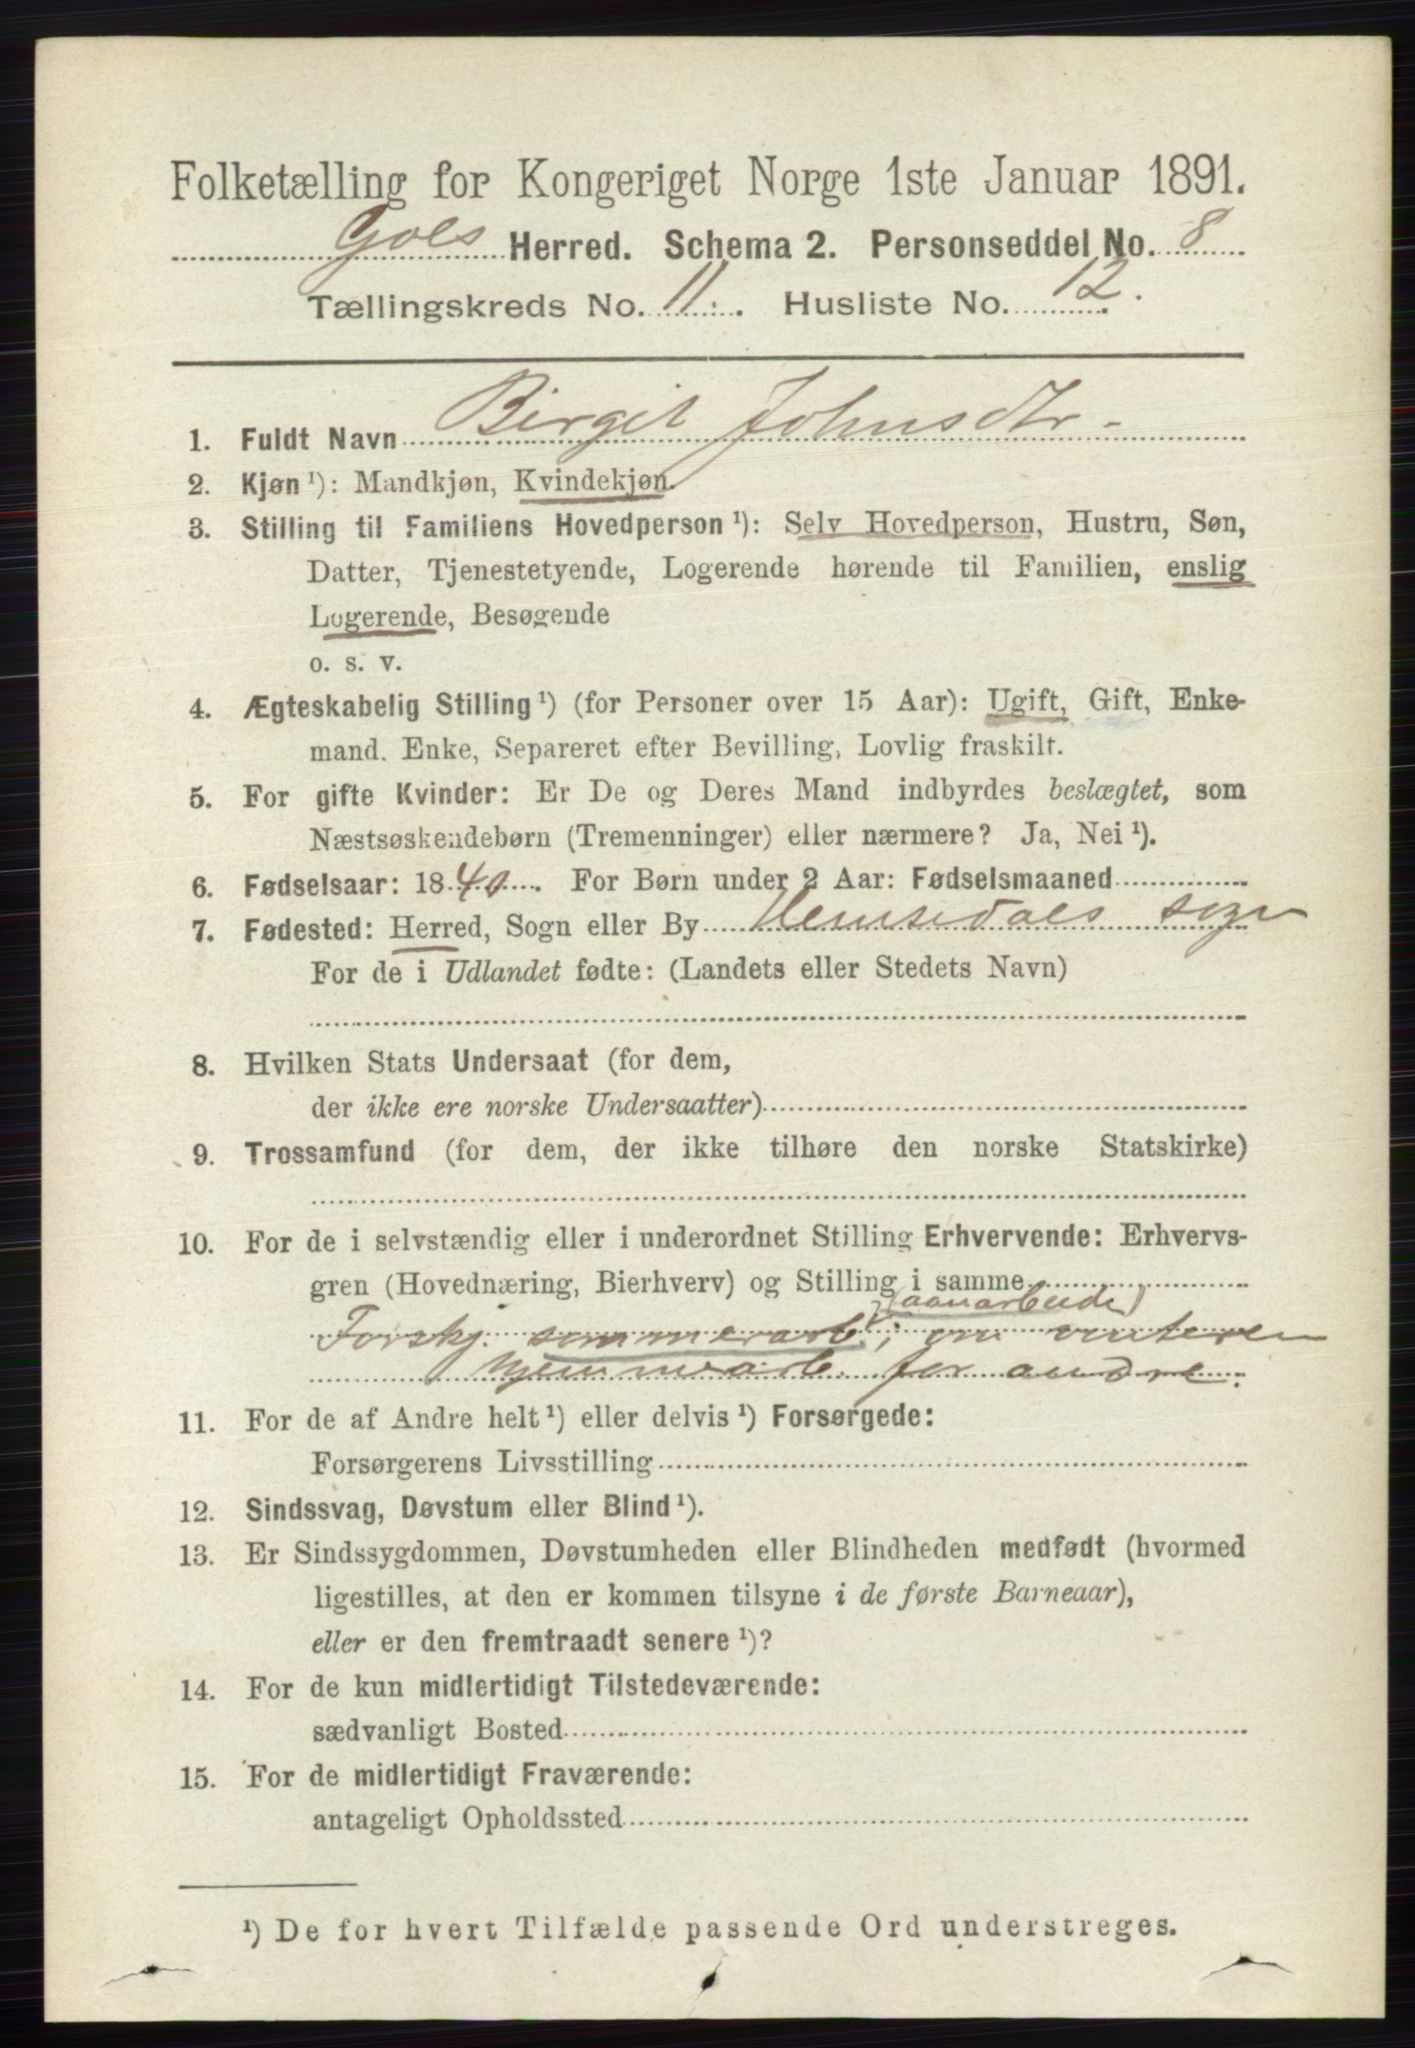 Folketælling for Kongeriget Norge 1ste Januar 1891.
Gols Herred. Schema 2. Personseddel No. 8
Tællingskreds No. 11. Husliste No. 12.
1. Fuldt Navn Birgit Johnsdtr -
2. Kjøn ¹): Mandkjøn, Kvindekjøn.
3. Stilling til Familiens Hovedperson ¹): Selv Hovedperson, Hustru, Søn,
Datter, Tjenestetyende, Logerende hørende til Familien, enslig
Logerende, Besøgende
o. s. v.
4. Ægteskabelig Stilling ¹) (for Personer over 15 Aar): Ugift, Gift, Enke-
mand. Enke, Separeret efter Bevilling, Lovlig fraskilt.
5. For gifte Kvinder: Er De og Deres Mand indbyrdes beslægtet, som
Næstsøskendebørn (Tremenninger) eller nærmere? Ja, Nei ¹).
6. Fødselsaar: 1840. For Børn under 2 Aar: Fødselsmaaned
7. Fødested: Herred, Sogn eller By Hemsedals sogn
For de i Udlandet fødte: (Landets eller Stedets Navn)
8. Hvilken Stats Undersaat (for dem,
der ikke ere norske Undersaatter)
9. Trossamfund (for dem, der ikke tilhøre den norske Statskirke)
10. For de i selvstændig eller i underordnet Stilling Erhvervende: Erhvervs-
gren (Hovednæring, Bierhverv) og Stilling i samme
(aanarbeide)
Forskj. sommerarb; om vinteren
hjemmearb. for andre.
11. For de af Andre helt ¹) eller delvis ¹) Forsørgede:
Forsørgerens Livsstilling
12. Sindssvag, Døvstum eller Blind ¹).
13. Er Sindssygdommen, Døvstumheden eller Blindheden medfødt (hvormed
ligestilles, at den er kommen tilsyne i de første Barneaar),
eller er den fremtraadt senere ¹)?
14. For de kun midlertidigt Tilstedeværende:
sædvanligt Bosted
15. For de midlertidigt Fraværende:
antageligt Opholdssted
¹) De for hvert Tilfælde passende Ord understreges.